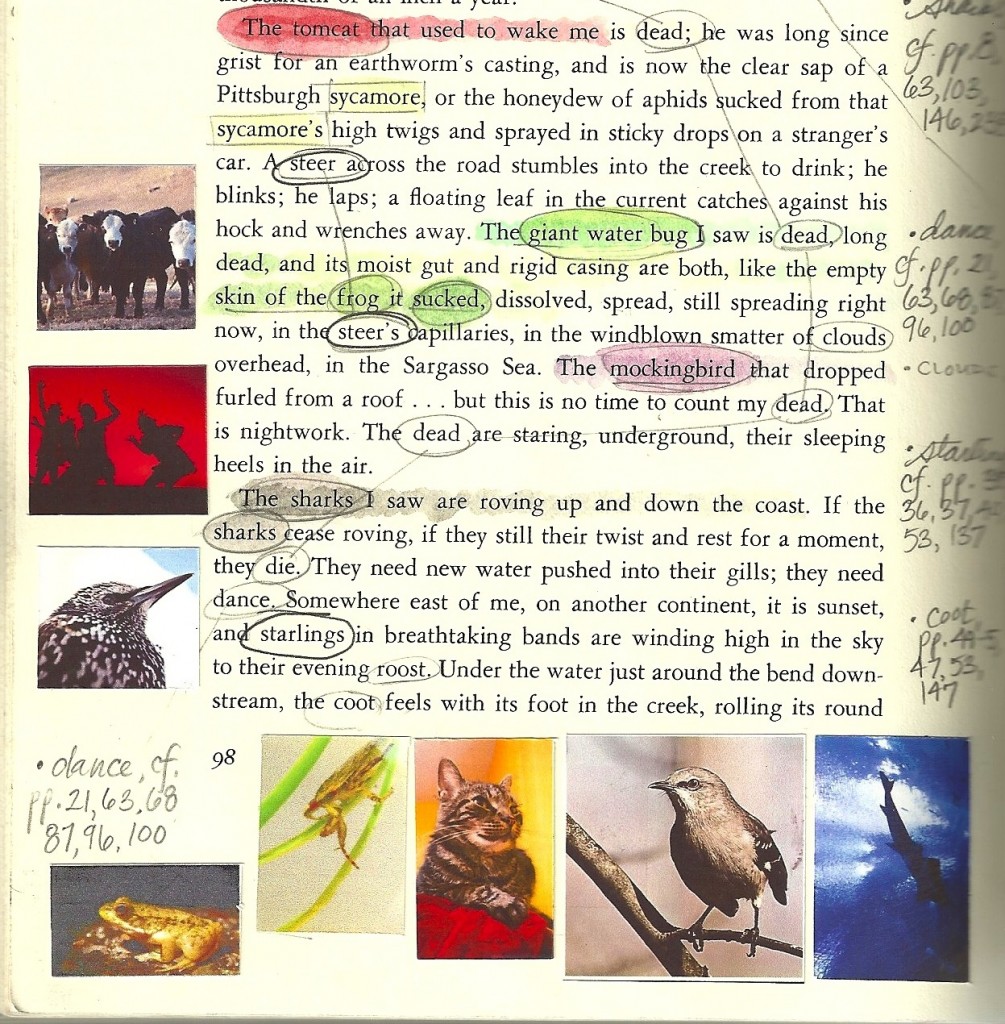 The tomcat that used to wake me is dead; he was long since
grist for an earthworm's casting, and is now the clear sap of a
Pittsburgh sycamore, or the honeydew of aphids sucked from that
sycamore's high twigs and sprayed in sticky drops on a stranger's
car. A steer across the road stumbles into the creek to drink; he
blinks; he laps; a floating leaf in the current catches against his
hock and wrenches away. The giant water bug I saw is dead, long
dead, and its moist gut and rigid casing are both, like the empty
skin of the frog it sucked, dissolved, spread, still spreading right
now, in the steer's capillaries, in the windblown smatter of clouds
overhead, in the Sargasso Sea. The mockingbird that dropped
furled from a roof . . . but this is no time to count my dead. That
is nightwork. The dead are staring, underground, their sleeping
heels in the air.
The sharks I saw are roving up and down the coast. If the
sharks cease roving, if they still their twist and rest for a moment,
they die. They need new water pushed into their gills; they need
dance. Somewhere east of me, on another continent, it is sunset,
and starlings in breathtaking bands are winding high in the sky
to their evening roost. Under the water just around the bend down-
stream, the coot feels with its foot in the creek, rolling its round
98
• dance, cf.
pp. 21, 63, 68
87, 96, 100
cf. pp.
63, 103,
146,
• dance
cf. pp. 21,
63, 68,
96, 100
•
cf. pp.
36, 37,
53, 137
• coot
pp.
47, 53,
147